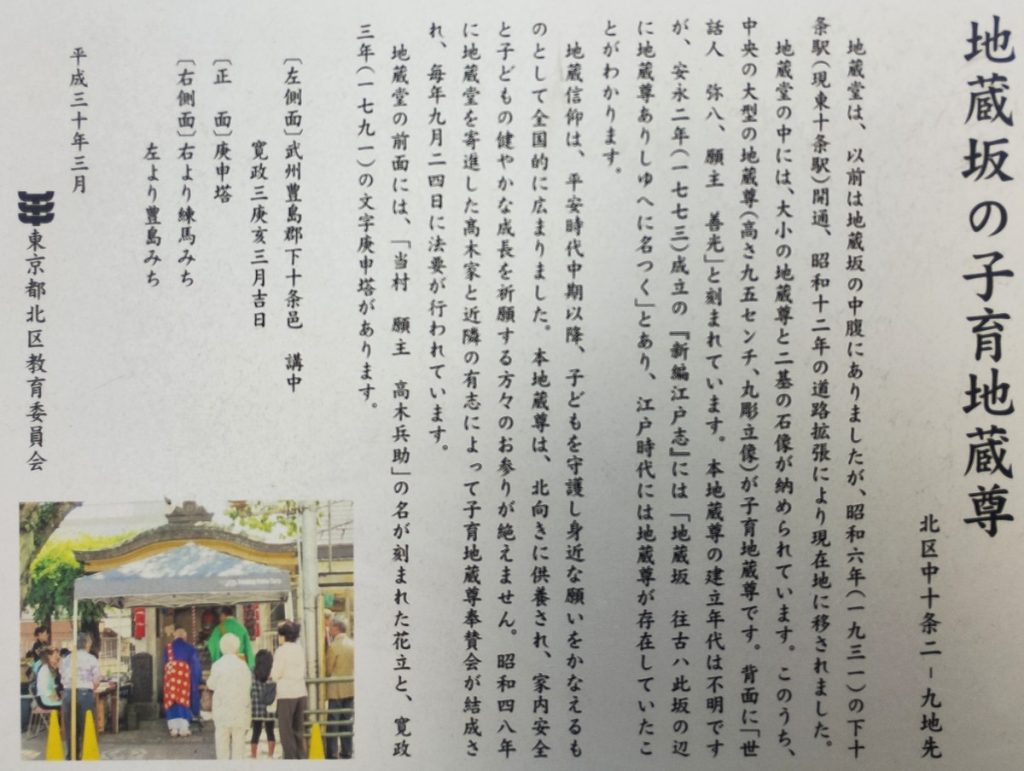 地蔵坂の子育地蔵尊
北区中十条二－九地先
地蔵堂は、以前は地蔵坂の中腹にありましたが、昭和六年（一九三一）の下十
条駅（現東十条駅）開通、昭和十二年の道路拡張により現在地に移されました。
地蔵堂の中には、大小の地蔵尊と二基の石像が納められています。このうち、
中央の大型の地蔵尊（高さ九五センチ、丸彫立像）が子育地蔵尊です。背面に「世
話人　弥八、願主　善光」と刻まれています。本地蔵尊の建立年代は不明です
が、安永二年（一七七三）成立の『新編江戸志』には「地蔵坂　往古ハ此坂の辺
に地蔵尊ありしゆへに名つく」とあり、江戸時代には地蔵尊が存在していたこ
とがわかります。
地蔵信仰は、平安時代中期以降、子どもを守護し身近な願いをかなえるも
のとして全国的に広まりました。本地蔵尊は、北向きに供養され、家内安全
と子どもの健やかな成長を祈願する方々のお参りが絶えません。昭和四八年
に地蔵堂を寄進した髙木家と近隣の有志によって子育地蔵尊奉賛会が結成さ
れ、毎年九月二四日に法要が行われています。
地蔵堂の前面には、「当村　願主　高木兵助」の名が刻まれた花立と、寛政
三年（一七九一）の文字庚申塔があります。
〔左側面〕武州豊島郡下十条邑　講中
寛政三庚亥三月吉日
〔正　面〕庚申塔
〔右側面〕右より練馬みち
左より豊島みち
平成三十年三月
東京都北区教育委員会